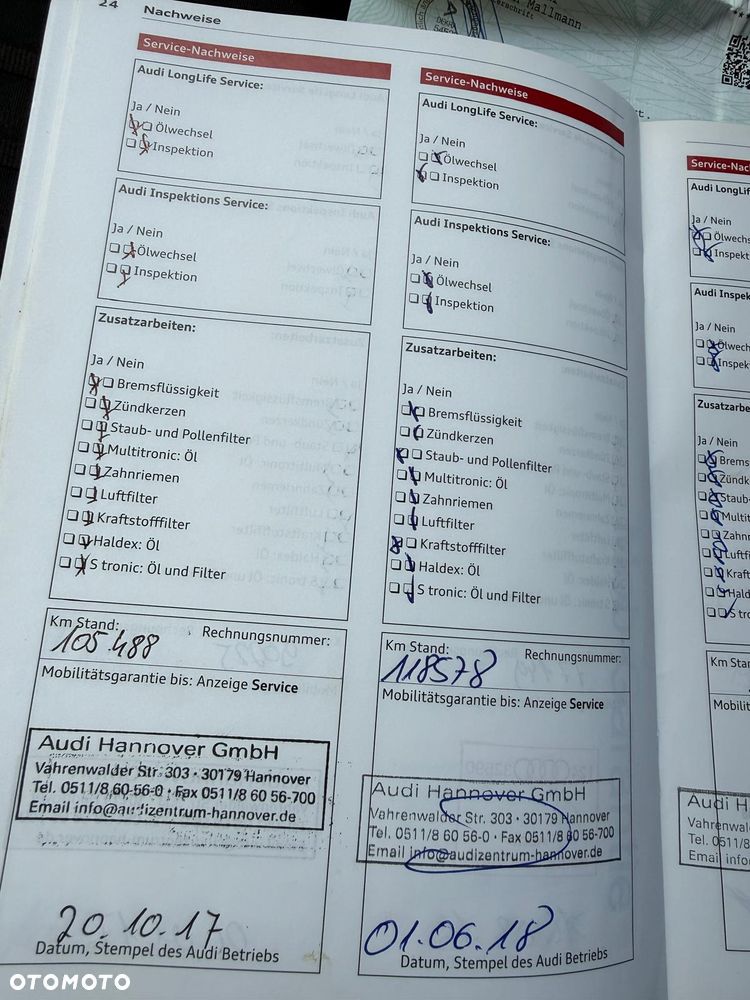 24
Nachweise
Service-Nachweise
Audi LongLife Service:
Ja / Nein
Ölwechsel
Inspektion
Audi Inspektions Service:
Ja / Nein
Ölwechsel
Inspektion
Zusatzarbeiten:
Ja / Nein
Bremsflüssigkeit
Zündkerzen
Staub- und Pollenfilter
Multitronic: Öl
Zahnriemen
Luftfilter
Kraftstofffilter
Haldex: Öl
S tronic: Öl und Filter
Km Stand:
Rechnungsnummer:
105.488
Mobilitätsgarantie bis: Anzeige Service
Audi Hannover GmbH
Vahrenwalder Str. 303 · 30179 Hannover
Tel. 0511/8 60 56-0 · Fax 0511/8 60 56-700
Email info@audizentrum-hannover.de
20.10.17
Datum, Stempel des Audi Betriebs
Service-Nachweise
Audi LongLife Service:
Ja / Nein
Ölwechsel
Inspektion
Audi Inspektions Service:
Ja / Nein
Ölwechsel
Inspektion
Zusatzarbeiten:
Ja / Nein
Bremsflüssigkeit
Zündkerzen
Staub- und Pollenfilter
Multitronic: Öl
Zahnriemen
Luftfilter
Kraftstofffilter
Haldex: Öl
S tronic: Öl und Filter
Km Stand:
Rechnungsnummer:
118578
Mobilitätsgarantie bis: Anzeige Service
Audi Hannover GmbH
Vahrenwalder Str. 303 · 30179 Hannover
Tel. 0511/8 60 56-0 · Fax 0511/8 60 56-700
Email info@audizentrum-hannover.de
01.06.18
Datum, Stempel des Audi Betriebs
Mallmann
Service-Nac
Audi LongLif
Ja / Nein
Ölwechs
Inspekt
Audi Inspek
Ja / Nein
Ölwech
Inspek
Zusatzarbei
Ja / Nein
Brems
Zündk
Staub-
Multit
Zahnr
Luftfi
Kraft
Hald
S tro
Km Stan
Mobilit
Audi H
Vahrenwa
Tel. 0511/8
Email info
OTOMOTO